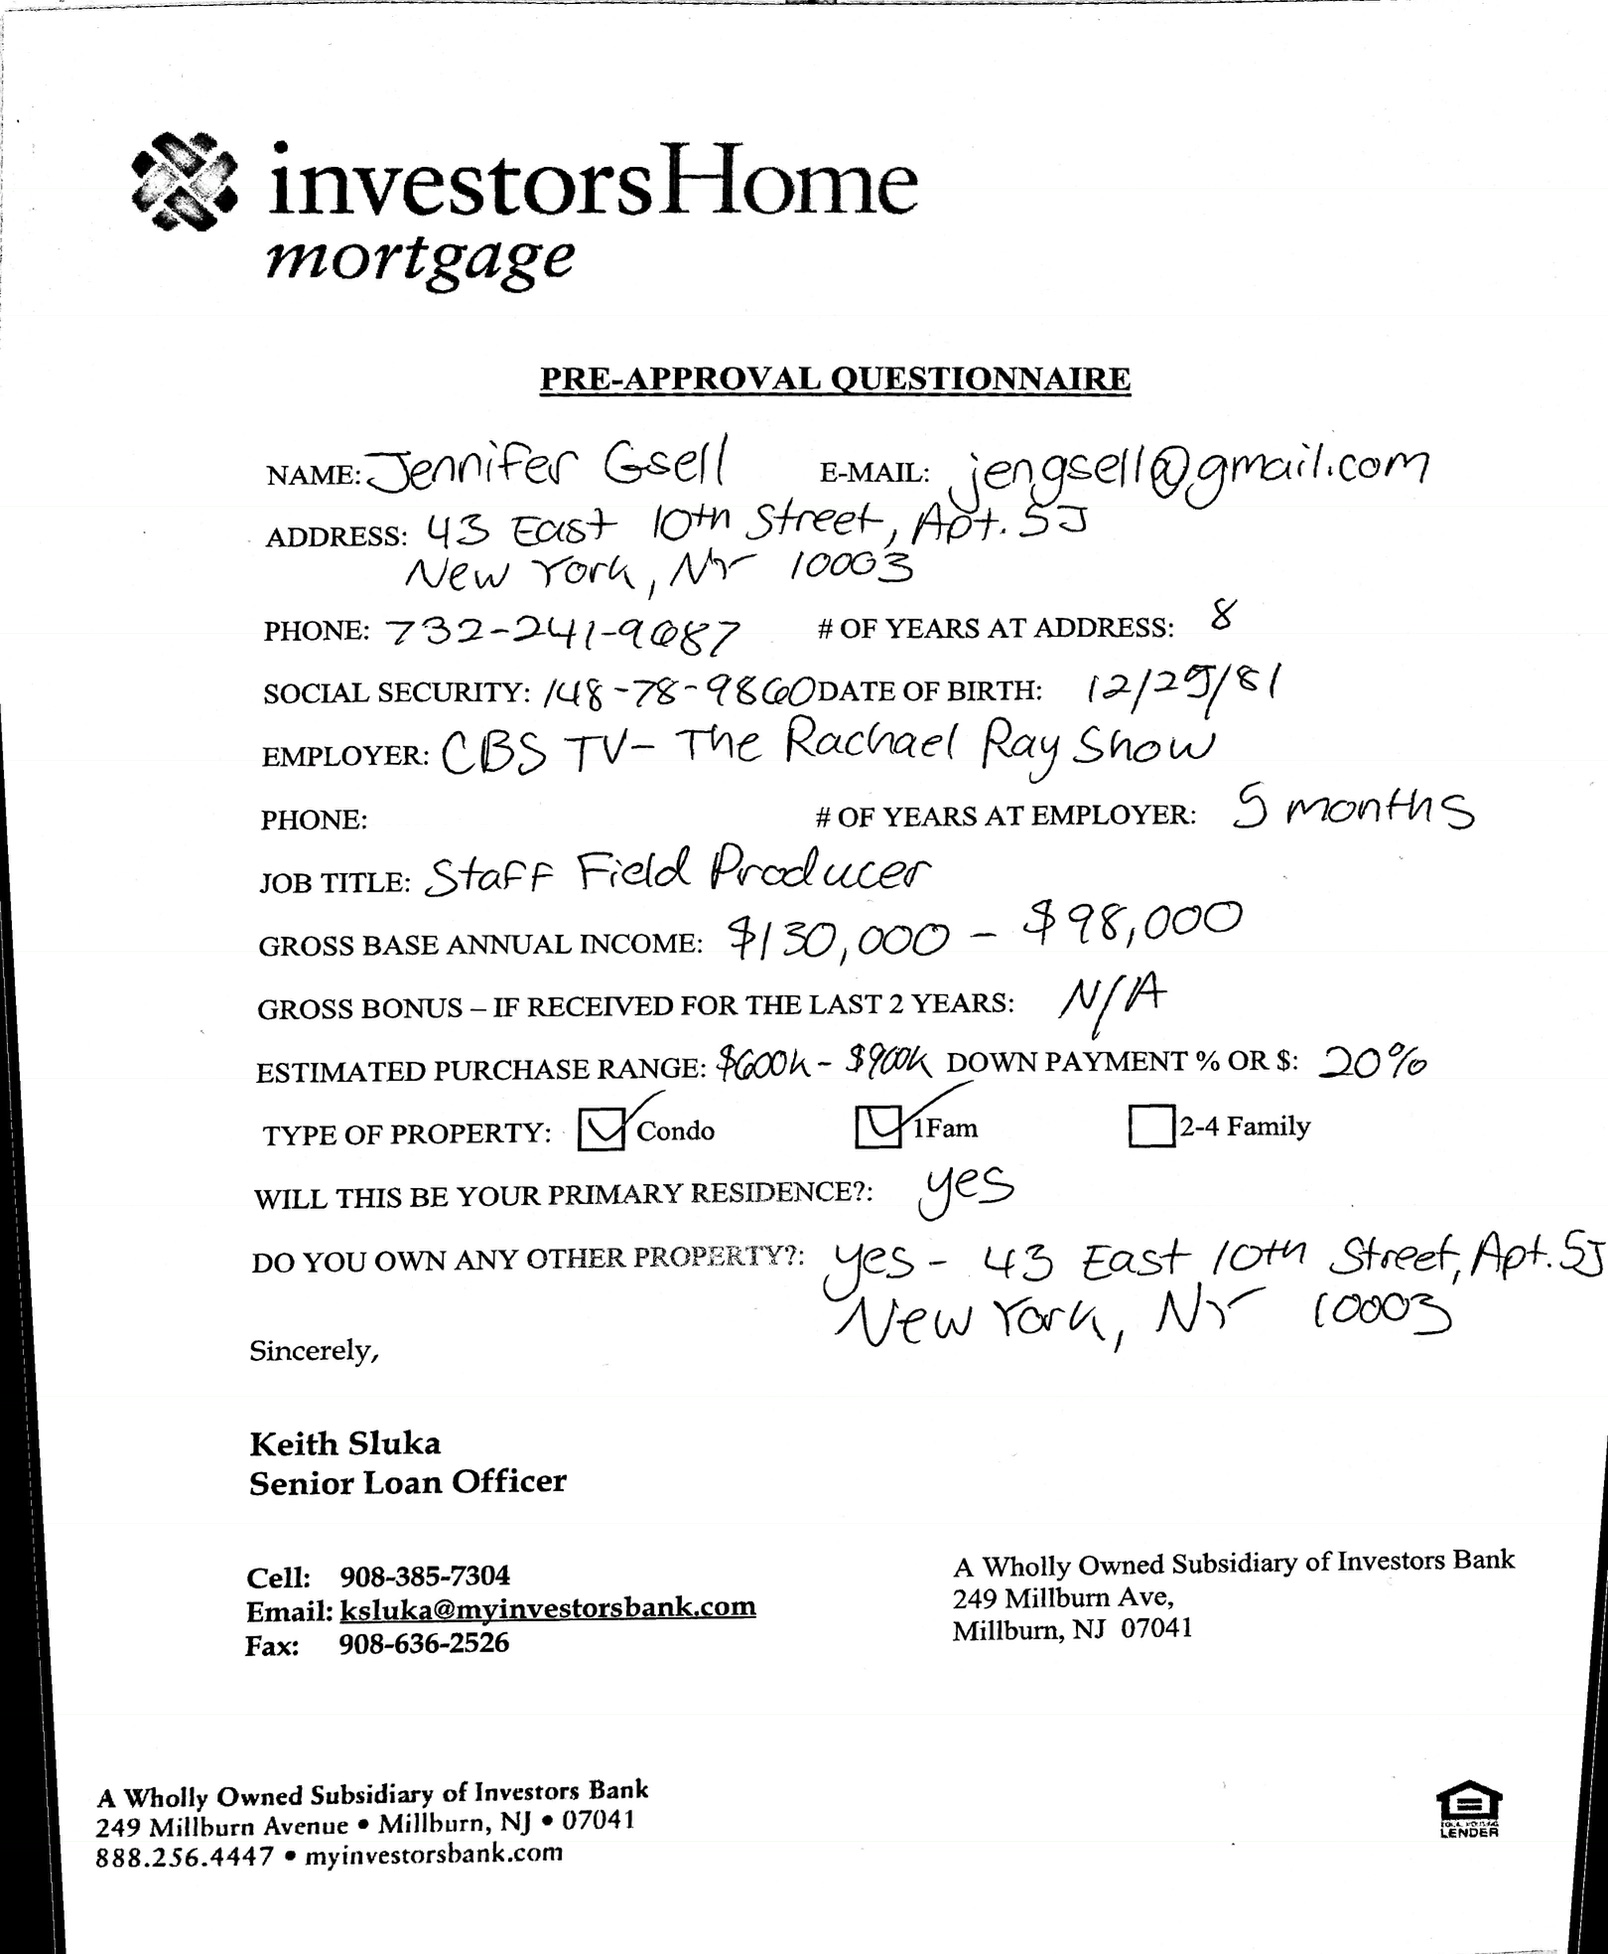 investorsHome
mortgage
PRE-APPROVAL QUESTIONNAIRE
NAME: Jennifer Gsell E-MAIL: jengsell@gmail.com
ADDRESS: 43 East 10th Street, Apt. 5J
New York, NY 10003
PHONE: 732-241-9687 # OF YEARS AT ADDRESS: 8
SOCIAL SECURITY: 148-78-9860 DATE OF BIRTH: 12/25/81
EMPLOYER: CBS TV- The Rachael Ray Show
PHONE: # OF YEARS AT EMPLOYER: 5 months
JOB TITLE: Staff Field Producer
GROSS BASE ANNUAL INCOME: $130,000 - $98,000
GROSS BONUS – IF RECEIVED FOR THE LAST 2 YEARS: N/A
ESTIMATED PURCHASE RANGE: $600k - $900k DOWN PAYMENT % OR $: 20%
TYPE OF PROPERTY: Condo 1Fam 2-4 Family
WILL THIS BE YOUR PRIMARY RESIDENCE?: yes
DO YOU OWN ANY OTHER PROPERTY?: yes - 43 East 10th Street, Apt. 5J
New York, NY 10003
Sincerely,
Keith Sluka
Senior Loan Officer
Cell: 908-385-7304
Email: ksluka@myinvestorsbank.com
Fax: 908-636-2526
A Wholly Owned Subsidiary of Investors Bank
249 Millburn Ave,
Millburn, NJ 07041
A Wholly Owned Subsidiary of Investors Bank
249 Millburn Avenue • Millburn, NJ • 07041
888.256.4447 • myinvestorsbank.com
LENDER